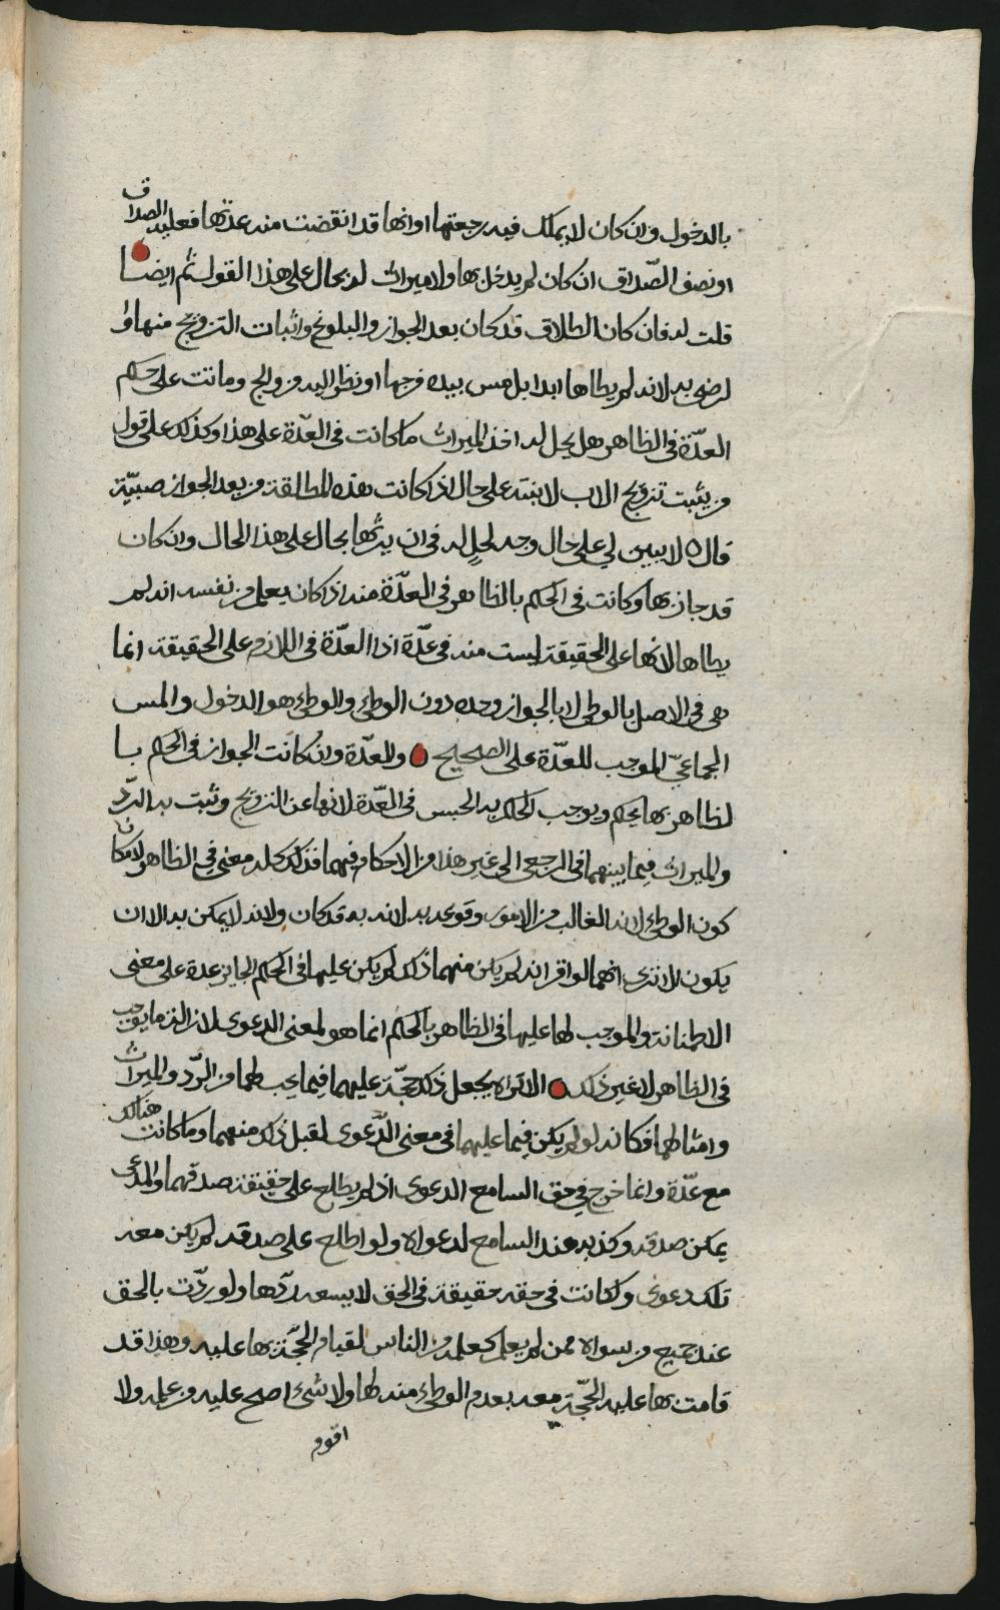 بالدخول وان كان لا يملك فيه رجعتها او انها قد انقضت منه عدتها فعليه الصداق
او نصف الصّداق ان كان لم يدخل بها ولا ميراث له بحال على هذا القول ثم ايضا
قلت له فان كان الطلاق قد كان بعد الجواز والبلوغ واثبات التزويج منها او
لرضى به لانه لم يطاها ابدا بل مس بيده فرجها او نظر اليه من والج وماتت على حكم
العدّة في الظاهر هل يحل له اخذ الميراث ما كانت في العدّة على هذا وكذلك على قول
من يثبت تزويج الاب لابنته على حال اذا كانت هذه المطالقة من بعد الجواز صبيّة
قال لا يبين لي على حال وجه لحلٍ له في ان يرثها بحال على هذا الحال وان كان
قد جاز بها وكانت في الحكم بالظاهر في العدّة منه اذا كان يعلم من نفسه انه لم
يطاها لانها على الحقيقة ليست منه في عدّة اذا العدّة في اللازم على الحقيقة انما
هي في الاصل بالوطي لا بالجواز وحده دون الوطي والوطي هو الدخول والمس
الجماعيّ الموجب للعدّة على الصحيح والعدّة وان كانت الجواز في الحكم با
لظاهر بها يحكم ويوجب الحكم به الحبس في العدّة لازما عن التزويج وثبت به الردّ
والميراث فيما بينهما في الرجعى الى غير هذا من الاحكام فيهما فذلك كله معنى في الظاهر لامكان
كون الوطي لانه الغالب من الامور وقوعه به لانه به قد كان ولانه لا يمكن به الا ان
يكون الا ترى انهما لو اقرا انه لم يكن منهما ذلك لم يكن عليها في الحكم الجايز عدة على معنى
الاطمنانة والموجب لها عليها في الظاهر بالحكم انما هو لمعنى الدعوى لازالتها ما يوجب
في الظاهر لا غير ذلك الا تراه يجعل ذلك حجّة عليهما فيما يجب لهما من الردّ والميراث
وامثالهما فكانه لو لم يكن فيما عليهما في معنى الدّعوى لقبل ذلك منهما وما كانت هنالك
مع عدّة وانما خرج في حق السامع الدعوى اذ لم يطلع على حقيقة صدقهما والمدعى
يمكن صدقه وكذبه عند السامع لدعواه ولو اطلع على صدقه لم يكن معه
تلك دعوى وكانت في حقه حقيقة في الحق لا يسعه ردّها ولو ردّت بالحق
عند جميع من سواه ممن لم يعلم كعلمه من الناس لقيام الحجّة بها عليه وهذا قد
قامت بها عليه الحجّة معه بعدم الوطي منه لها ولا شيء اصح عليه من علمه ولا
اقوم